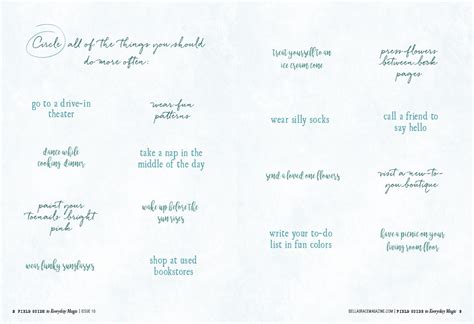 Circle all of the things you should
do more often:
go to a drive-in
theater
wear fun
patterns
dance while
cooking dinner
take a nap in the
middle of the day
paint your
toenails bright
pink
wake up before the
sun rises
wear funky sunglasses
shop at used
bookstores
8 FIELD GUIDE to Everyday Magic | ISSUE 10
treat yourself to an
ice cream cone
press flowers
between book
pages
wear silly socks
call a friend to
say hello
send a loved one flowers
visit a new-to-
you boutique
write your to-do
list in fun colors
have a picnic on your
living room floor
BELLAGRACEMAGAZINE.COM | FIELD GUIDE to Everyday Magic 9